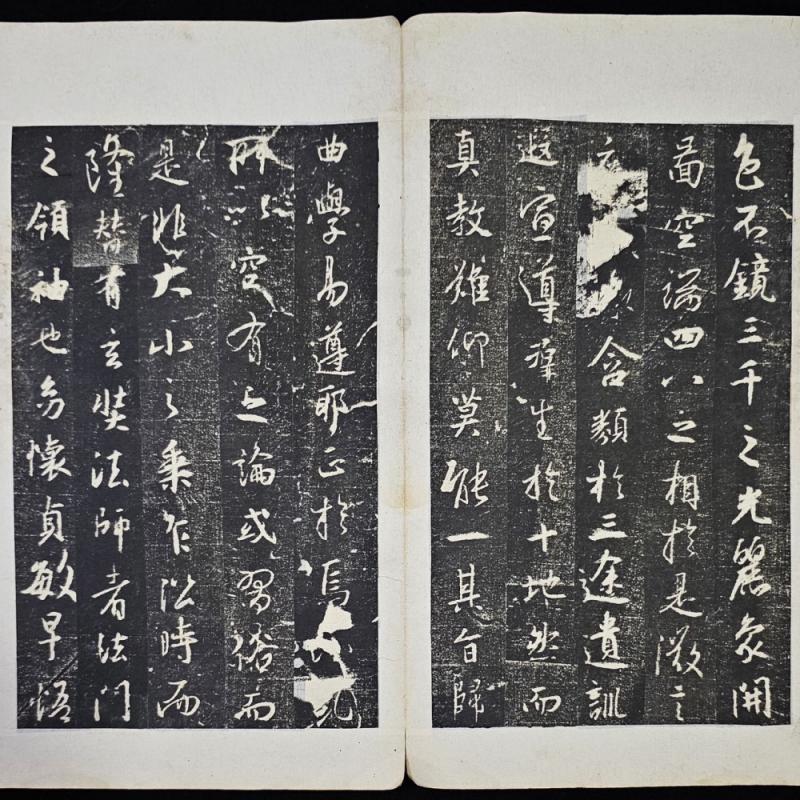 色不鏡三千之光麗象開
啚空端四八之相於是微言
含類於三途遺訓
遐宣導群生於十地然而
真教難仰莫能一其旨歸
曲學易遵耶正於焉糺
所以空有之論或習俗而
是非大小之乘乍沿時而
隆替有玄奘法師者法門
之領袖也幼懷貞敏早悟